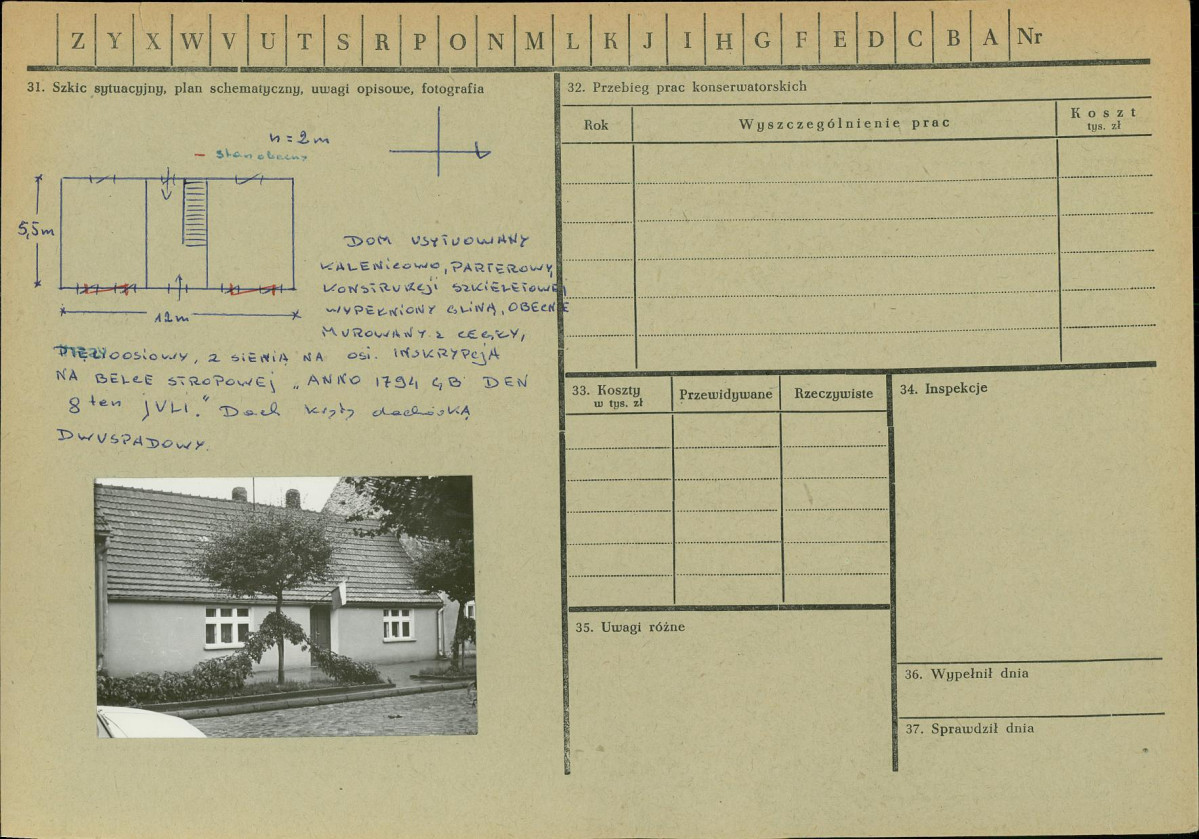 Z Y X W V U T S R P O N M L K J I H G F E D C B A Nr
31. Szkic sytuacyjny, plan schematyczny, uwagi opisowe, fotografia
n = 2 m
— stan obecny
5,5 m
12 m
DOM USYTUOWANY
KALENICOWO, PARTEROWY,
KONSTRUKCJI SZKIELETOWEJ
WYPEŁNIONY GLINĄ, OBECNIE
MUROWANY Z CEGŁY,
PIĘCIOOSIOWY, Z SIENIĄ NA OSI. INSKRYPCJA
NA BELCE STROPOWEJ „ANNO 1794 GB DEN
8 ten JVLI." Dach kryty dachówką
DWUSPADOWY.
32. Przebieg prac konserwatorskich
Rok
Wyszczególnienie prac
Koszt
tys. zł
33. Koszty
w tys. zł
Przewidywane
Rzeczywiste
34. Inspekcje
35. Uwagi różne
36. Wypełnił dnia
37. Sprawdził dnia